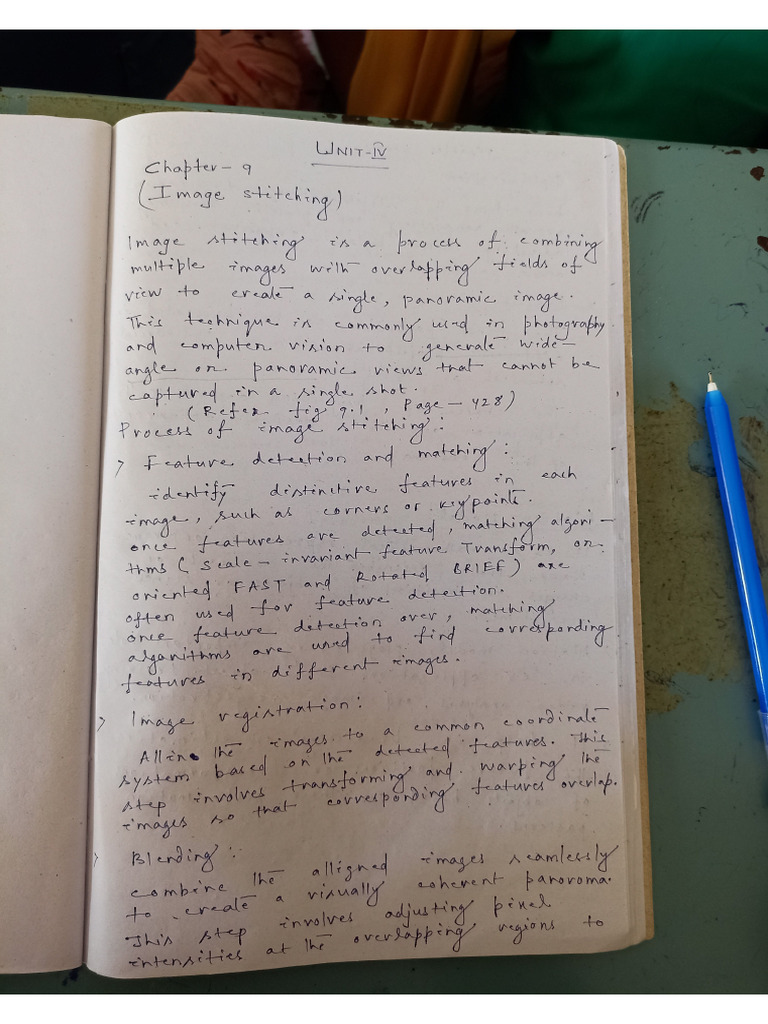 UNIT-IV
Chapter - 9
(Image stitching)
Image stitching is a process of combining
multiple images with overlapping fields of
view to create a single, panoramic image.
This technique is commonly used in photography
and computer vision to generate wide-
angle or panoramic views that cannot be
captured in a single shot.
(Refer fig 9.1, Page - 428)
Process of image stitching:
> Feature detection and matching:
identify distinctive features in each
image, such as corners or keypoints.
once features are detected, matching algori-
thms (Scale-invariant feature Transform, or
oriented FAST and Rotated BRIEF) are
often used for feature detection.
once feature detection over, matching
algorithms are used to find corresponding
features in different images.
> Image registration:
Allin the images to a common coordinate
system based on the detected features. This
step involves transforming and warping the
images so that corresponding features overlap.
> Blending:
combine the alligned images seamlessly
to create a visually coherent panoroma.
This step involves adjusting pixel
intensities at the overlapping regions to